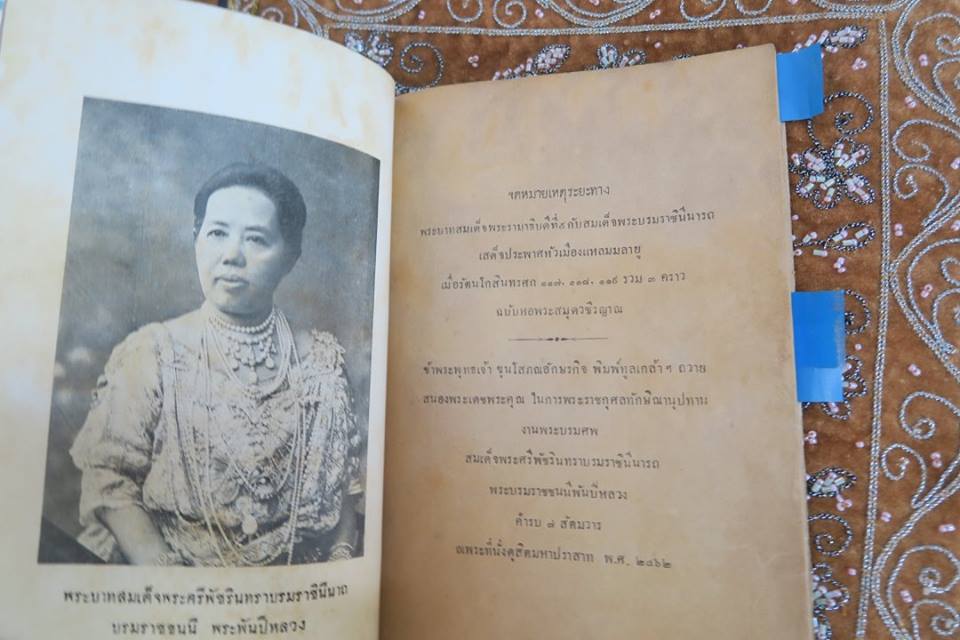 พระบาทสมเด็จพระศรีพัชรินทราบรมราชินีนาถ
บรมราชชนนี พระพันปีหลวง
จดหมายเหตุระยะทาง
พระบาทสมเด็จพระรามาธิบดีที่๕ กับสมเด็จพระบรมราชินีนารถ
เสด็จประพาศหัวเมืองแหลมมลายู
เมื่อรัตนโกสินทรศก ๑๑๗, ๑๑๘, ๑๑๙ รวม ๓ คราว
ฉบับหอพระสมุดวชิรญาณ
ข้าพระพุทธเจ้า ขุนโสภณอักษรกิจ พิมพ์ทูลเกล้า ฯ ถวาย
สนองพระเดชพระคุณ ในการพระราชกุศลทักษิณานุปทาน
งานพระบรมศพ
สมเด็จพระศรีพัชรินทราบรมราชินีนารถ
พระบรมราชชนนีพันปีหลวง
คำรบ ๗ สัตมวาร
ณพระที่นั่งดุสิตมหาปราสาท พ.ศ. ๒๔๖๒